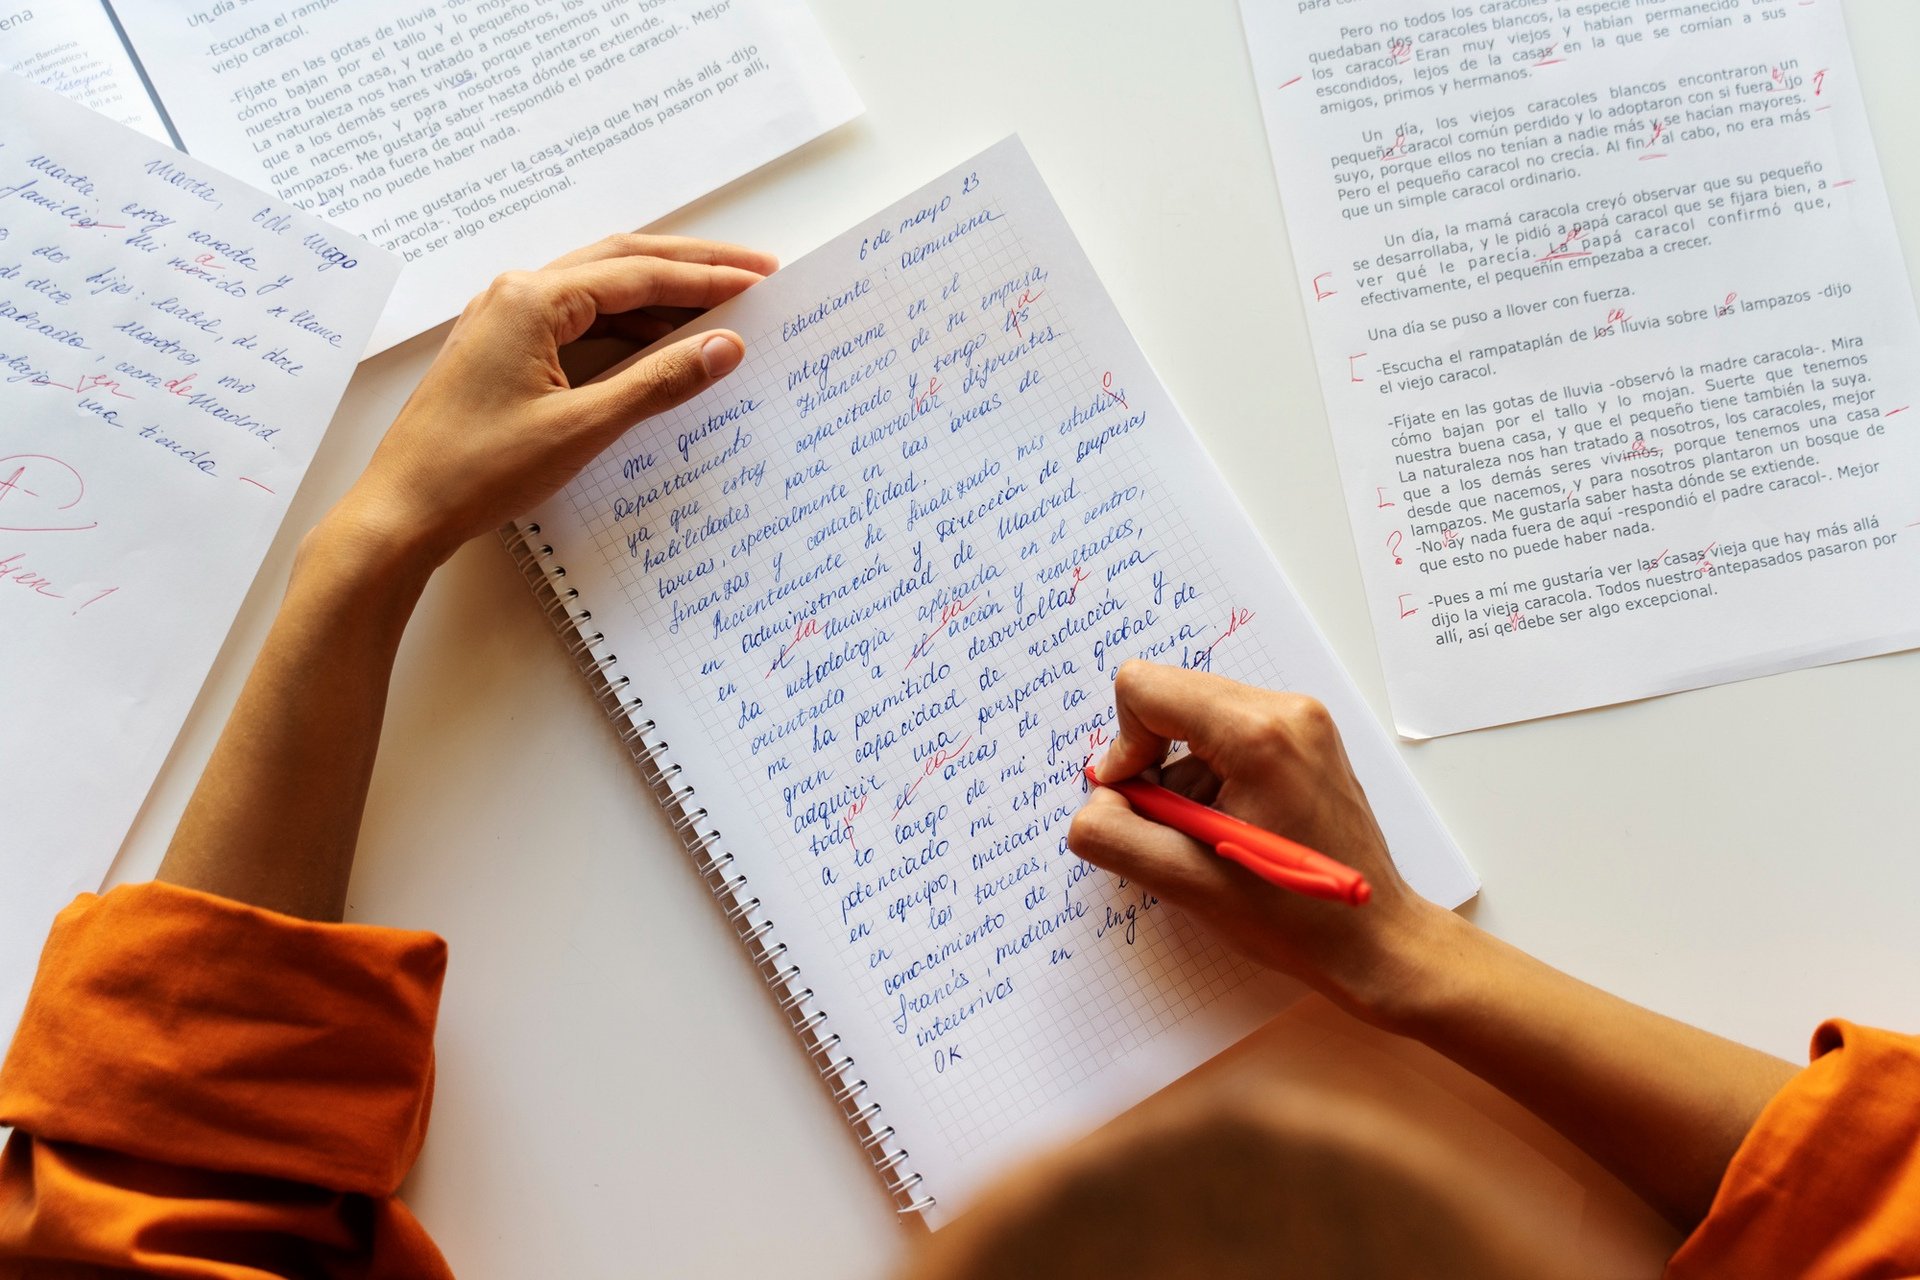 ena
en Barcelona,
informático y
(Levan-
desayuno
de casa
(Ir) a su
oche
Un día se puso
-Escucha el rampa
viejo caracol.
-Fíjate en las gotas de lluvia -ob
cómo bajan por el tallo y lo mojan.
nuestra buena casa, y que el pequeño
La naturaleza nos han tratado a nosotros, los
que a los demás seres vivos, porque tenemos una
que nacemos, y para nosotros plantaron un bos
lampazos. Me gustaría saber hasta dónde se extiende.
-No hay nada fuera de aquí -respondió el padre caracol-. Mejor
esto no puede haber nada.
a mí me gustaría ver la casa vieja que hay más allá -dijo
caracola-. Todos nuestros antepasados pasaron por allí,
be ser algo excepcional.
Marta, 6 de mayo
Marta. Estoy casada y
familias. Mi marido se llama
a
dos hijos: Isabel, de doce
de diez. Nosotros vivi
labrado, cerca de Madrid.
de
trabajo en una tienda
A-
bien!
6 de mayo 23
Estudiante: Almudena
Me gustaria integrarme en el
Departamento Financiero de su empresa,
ya que estoy capacitado y tengo los
a
habilidades para desarrolar diferentes
tareas, especialmente en las áreas de
finanzas y contabilidad.
Recientemente he finalizado mis estudios
o
en administración y Dirección de Empresas
en el Universidad de Madrid.
la
La metodología aplicada en el centro,
orientada a el acción y resultados,
la
me ha permitido desarrollas una
gran capacidad de resolución y
adquirir una perspectiva global de
todo el areas de la empresa.
as
la
a lo largo de mi formac haj
he
potenciado mi espirit
u
en equipo, iniciativa
en las tareas, a
conocimiento de idi
francés, mediante
intensivos en Ingl
OK
Pero no todos los caracoles
quedaban dos caracoles blancos, la especie más
los caracol Eran muy viejos y habían permanecido bien
escondidos, lejos de la casas en la que se comían a sus
amigos, primos y hermanos.
Un día, los viejos caracoles blancos encontraron un
pequeña caracol común perdido y lo adoptaron con si fuera ijo
suyo, porque ellos no tenían a nadie más y se hacían mayores.
Pero el pequeño caracol no crecía. Al fin y al cabo, no era más
que un simple caracol ordinario.
Un día, la mamá caracola creyó observar que su pequeño
se desarrollaba, y le pidió a papá caracol que se fijara bien, a
ver qué le parecía. La papá caracol confirmó que,
efectivamente, el pequeñin empezaba a crecer.
Una día se puso a llover con fuerza.
-Escucha el rampataplán de los lluvia sobre las lampazos -dijo
la
el viejo caracol.
-Fíjate en las gotas de lluvia -observó la madre caracola-. Mira
cómo bajan por el tallo y lo mojan. Suerte que tenemos
nuestra buena casa, y que el pequeño tiene también la suya.
La naturaleza nos han tratado a nosotros, los caracoles, mejor
que a los demás seres vivimos, porque tenemos una casa
desde que nacemos, y para nosotros plantaron un bosque de
lampazos. Me gustaría saber hasta dónde se extiende.
-No ay nada fuera de aquí -respondió el padre caracol-. Mejor
?
que esto no puede haber nada.
-Pues a mí me gustaría ver las casas vieja que hay más allá
dijo la vieja caracola. Todos nuestro antepasados pasaron por
allí, así qe debe ser algo excepcional.